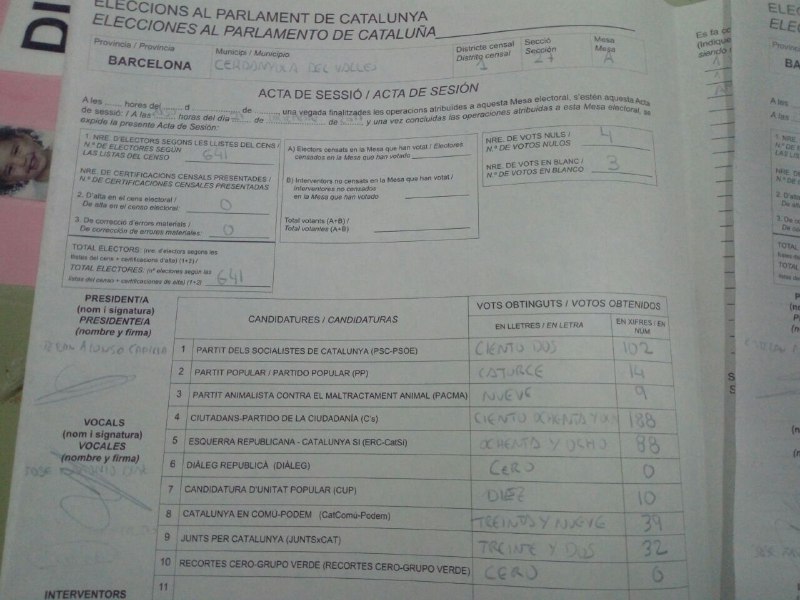 DI
ELECCIONS AL PARLAMENT DE CATALUNYA
ELECCIONES AL PARLAMENTO DE CATALUÑA
Província / Provincia
BARCELONA
Municipi / Municipio
CERDANYOLA DEL VALLES
Districte censal
Distrito censal
1
Secció
Sección
27
Mesa
Mesa
A
ACTA DE SESSIÓ / ACTA DE SESIÓN
A les ........ hores del ........ d ........ de ........ una vegada finalitzades les operacions atribuïdes a aquesta Mesa electoral, s'estén aquesta Acta
de sessió: / A las ........ horas del día ........ de ........ de ........ y una vez concluidas las operaciones atribuidas a esta Mesa electoral, se
expide la presente Acta de Sesión:
1. NRE. D'ELECTORS SEGONS LES LLISTES DEL CENS /
N.º DE ELECTORES SEGÚN
LAS LISTAS DEL CENSO 641
NRE. DE CERTIFICACIONS CENSALS PRESENTADES /
N.º DE CERTIFICACIONES CENSALES PRESENTADAS
2. D'alta en el cens electoral /
De alta en el censo electoral: 0
3. De correcció d'errors materials /
De corrección de errores materiales: 0
TOTAL ELECTORS: (nre. d'electors segons les
llistes del cens + certificacions d'alta) (1+2) /
TOTAL ELECTORES: (nº electores según las
listas del censo + certificaciones de alta) (1+2) 641
A) Electors censats en la Mesa que han votat / Electores
censados en la Mesa que han votado
B) Interventors no censats en la Mesa que han votat /
Interventores no censados
en la Mesa que han votado
Total votants (A+B) /
Total votantes (A+B)
NRE. DE VOTS NULS /
N.º DE VOTOS NULOS 4
NRE. DE VOTS EN BLANC /
N.º DE VOTOS EN BLANCO 3
PRESIDENT/A
(nom i signatura)
PRESIDENTE/A
(nombre y firma)
ALONSO
VOCALS
(nom i signatura)
VOCALES
(nombre y firma)
JOSE
INTERVENTORS
CANDIDATURES / CANDIDATURAS
VOTS OBTINGUTS / VOTOS OBTENIDOS
EN LLETRES / EN LETRA
EN XIFRES / EN
NÚM
1 PARTIT DELS SOCIALISTES DE CATALUNYA (PSC-PSOE) CIENTO DOS 102
2 PARTIT POPULAR / PARTIDO POPULAR (PP) CATORCE 14
3 PARTIT ANIMALISTA CONTRA EL MALTRACTAMENT ANIMAL (PACMA) NUEVE 9
4 CIUTADANS-PARTIDO DE LA CIUDADANÍA (C's) CIENTO OCHENTA Y 188
5 ESQUERRA REPUBLICANA - CATALUNYA SI (ERC-CatSí) OCHENTA Y OCHO 88
6 DIÀLEG REPUBLICÀ (DIÀLEG) CERO 0
7 CANDIDATURA D'UNITAT POPULAR (CUP) DIEZ 10
8 CATALUNYA EN COMÚ-PODEM (CatComú-Podem) TREINTA Y NUEVE 39
9 JUNTS PER CATALUNYA (JUNTSxCAT) TREINTE Y DOS 32
10 RECORTES CERO-GRUPO VERDE (RECORTES CERO-GRUPO VERDE) CERO 0
11
Es fa co
(Indique
siendo
ELEC
ELE